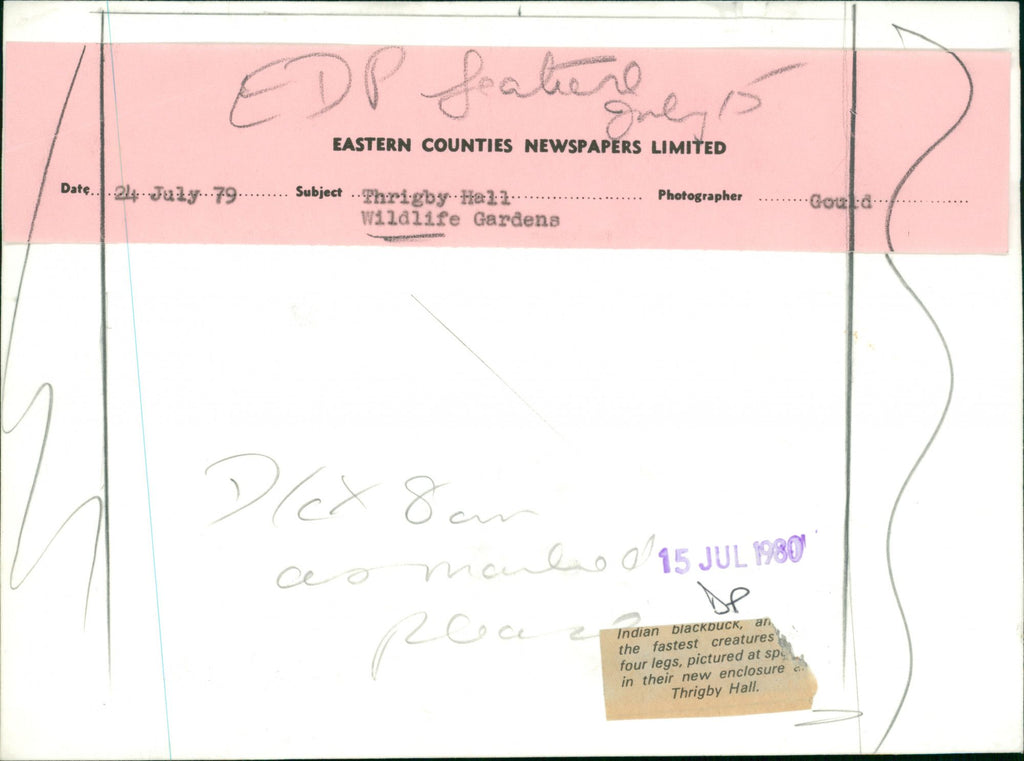 EDP feature
July 15
EASTERN COUNTIES NEWSPAPERS LIMITED
Date 24 July 79 Subject Thrigby Hall Photographer Gould
Wildlife Gardens
8 cm
as marked
please
15 JUL 1980
DP
Indian blackbuck,
the fastest creatures
four legs, pictured at
in their new enclosure
Thrigby Hall.